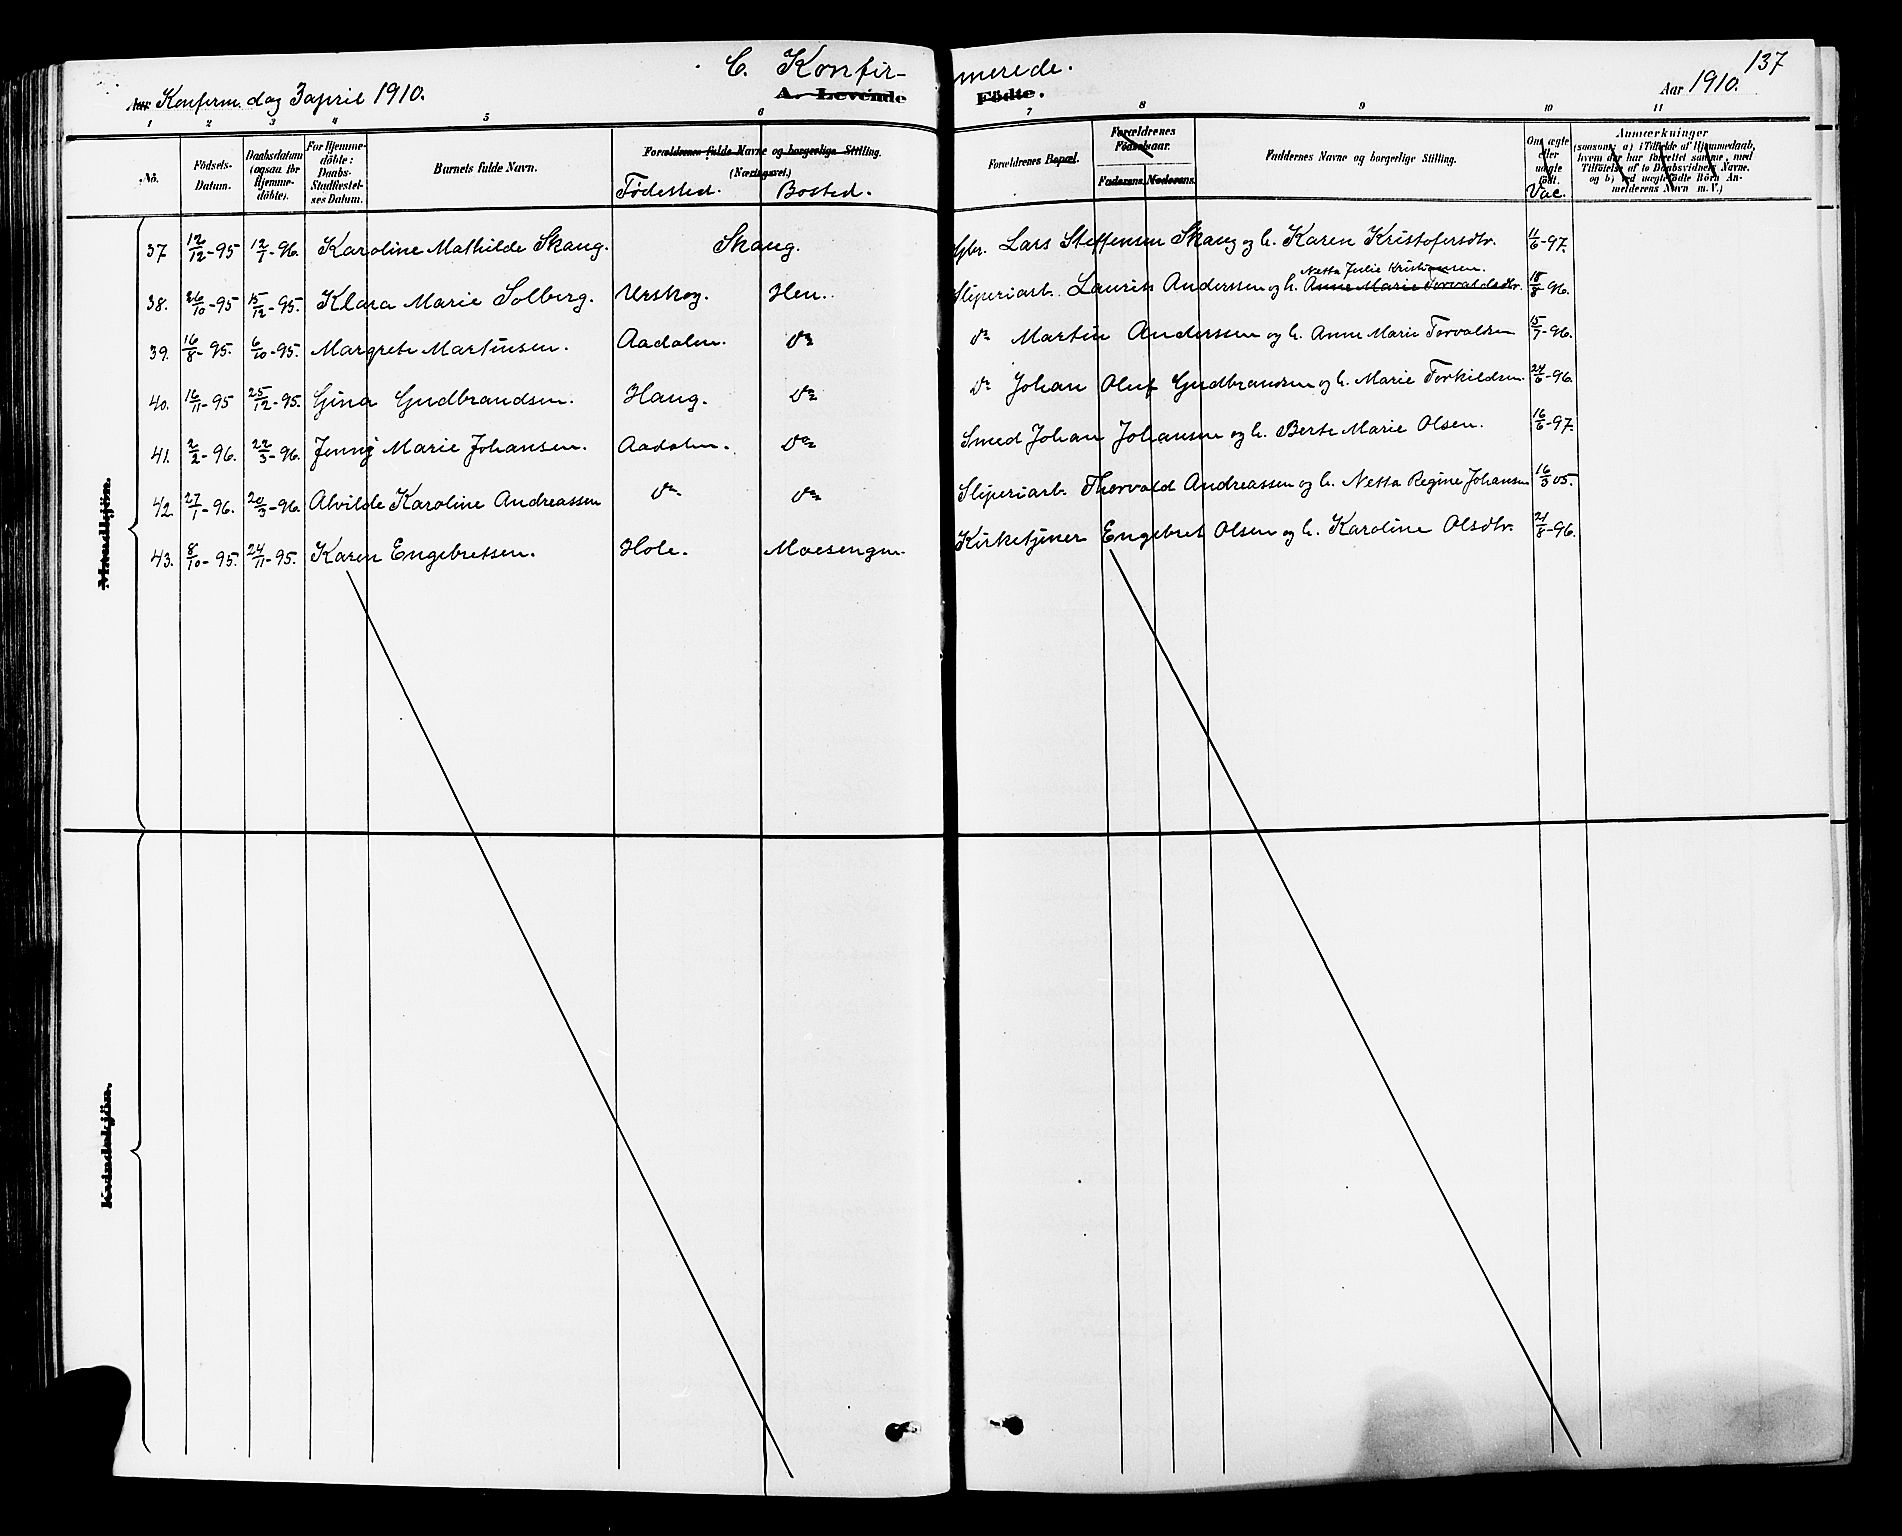 C. Konfir- merede. 137
Aar Konferm. dag 3 april 1910. A. Levende Födte. Aar 1910.
1 2 3 4 5 6 7 8 9 10 11
No.
Födsels-
Datum.
Daabsdatum
(ogsaa for
Hjemme-
döbte).
For Hjemme-
döbte:
Daabs-
Stadfæstel-
ses Datum.
Barnets fulde Navn.
Forældrenes fulde Navne og borgerlige Stilling.
(Næringsvei.)
Födested. Bosted.
Forældrenes Bopæl.
Forældrenes
Födselsaar.
Faderens. Moderens.
Faddernes Navne og borgerlige Stilling.
Om ægte
eller
uægte
födt.
Vac.
Anmærkninger
(saasom: a) i Tilfælde af Hjemmedaab,
hvem der har forrettet samme, med
Tilföielse af to Daabsvidners Navne,
og b) ved uægtefödte Börn An-
melderens Navn m. V.)
37 12/12-95 12/1-96. Karoline Mathilde Skaug. Skaug. Gbr. Lars Steffensen Skaug og h. Karen Kristofersdtr. 11/6-97.
Netta Julie Kristiansen.
38. 26/10-95 15/12-95. Klara Marie Solberg. Urskog. Hen. Sliperiarb. Laurits Anderssen og h. Anne Marie Torvaldsdtr. 18/8-96.
39. 16/8-95. 6/10-95. Margrete Martinsen. Aadalen. do do Martin Anderssen og h. Anne Marie Torvaldsen 15/7-96.
40. 16/11-95 25/12-95. Gina Gudbrandsen. Haug. do do Johan Oluf Gudbrandsen og h. Marie Torkildsen. 24/6-96.
41. 2/2-96. 22/3-96. Jenny Marie Johansen. Aadalen. do Smed Johan Johansen og h. Berte Marie Olsen. 16/6-97.
42 27/1-96. 20/3-96. Alvilde Karoline Andreassen do do Sliperiarb. Thorvald Andreassen og h. Netta Regine Johansen 16/3 05.
43. 8/10-95. 24/11-95. Karen Engebretsen. Hole. Moesengen. Kirketjener Engebret Olsen og h. Karoline Olsdtr. 21/8-96.
Mandkjön.
Kvindekjön.